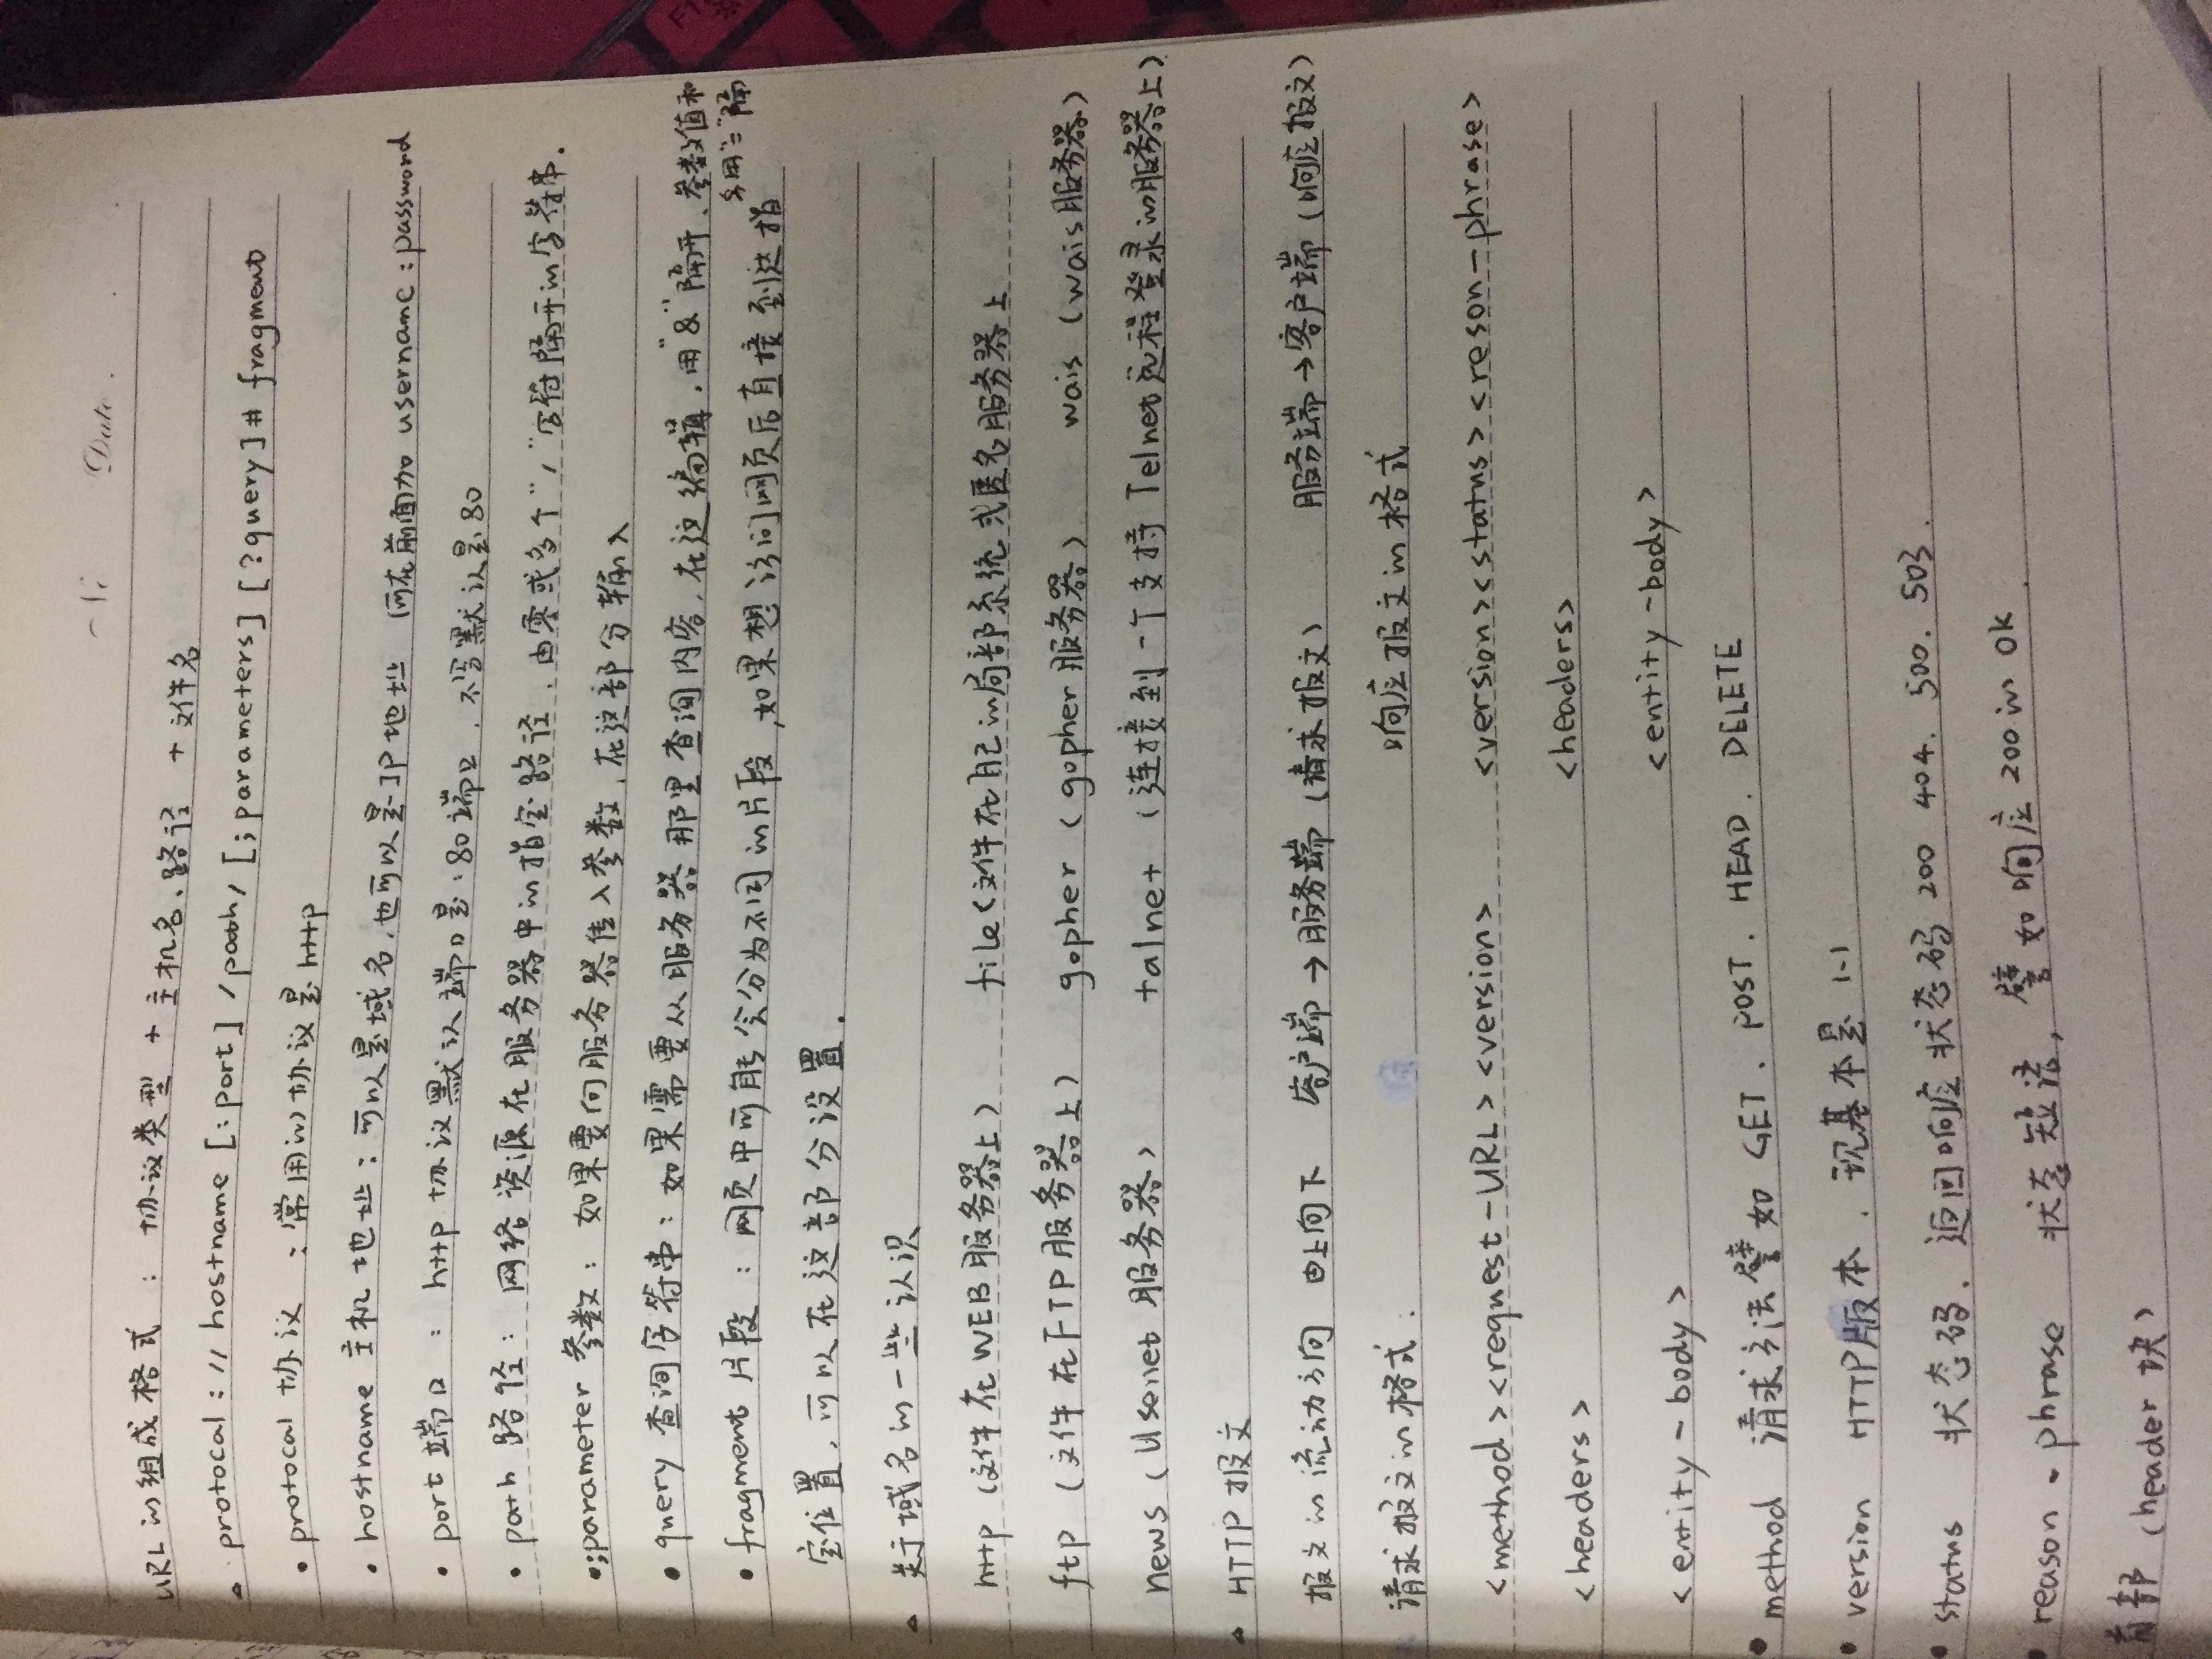 No Date.
URL的组成格式 : 协议类型 + 主机名、路径 + 文件名
△ protocal : // hostname [:port] / path / [;parameters] [?query]# fragment
• protocal 协议 : 常用的协议是http
• hostname 主机地址 : 可以是域名,也可以是IP地址 (可在前面加 username : password
• port 端口 : http 协议默认端口是:80端口,不写默认是80
• path 路径 : 网络资源在服务器中的指定路径,由零或多个"/"字符隔开的字符串.
•;parameter 参数 : 如果要向服务器传入参数,在这部分输入
• query 查询字符串 : 如果需要从服务器那里查询内容,在这编辑,用"&"隔开、参数值和
名用"="隔
• fragment 片段 : 网页中可能会分为不同的片段,如果想访问网页后直接到达指
定位置,可以在这部分设置.
△ 关于域名的一些认识
http (文件在WEB服务器上) file(文件在自己的局部系统或匿名服务器上
ftp (文件在FTP服务器上) gopher (gopher服务器) wais (wais服务器)
news (Usenet 服务器) talnet (连接到一个支持 Telnet远程登录的服务器上)
△ HTTP 报文
报文的流动方向 由上向下 客户端→服务端 (请求报文) 服务端→客户端 (响应报文)
请求报文的格式. 响应报文的格式
<method><request-URL><version> <version><status><reson-phrase>
<headers> <headers>
<entity-body> <entity-body>
• method 请求方法譬如 GET、POST、HEAD、DELETE
• version HTTP版本、现基本是 1.1
• status 状态码、返回响应状态码 200 404. 500. 503.
• reason - phrase 状态短语,譬如响应200的 OK.
首部 (header 块)